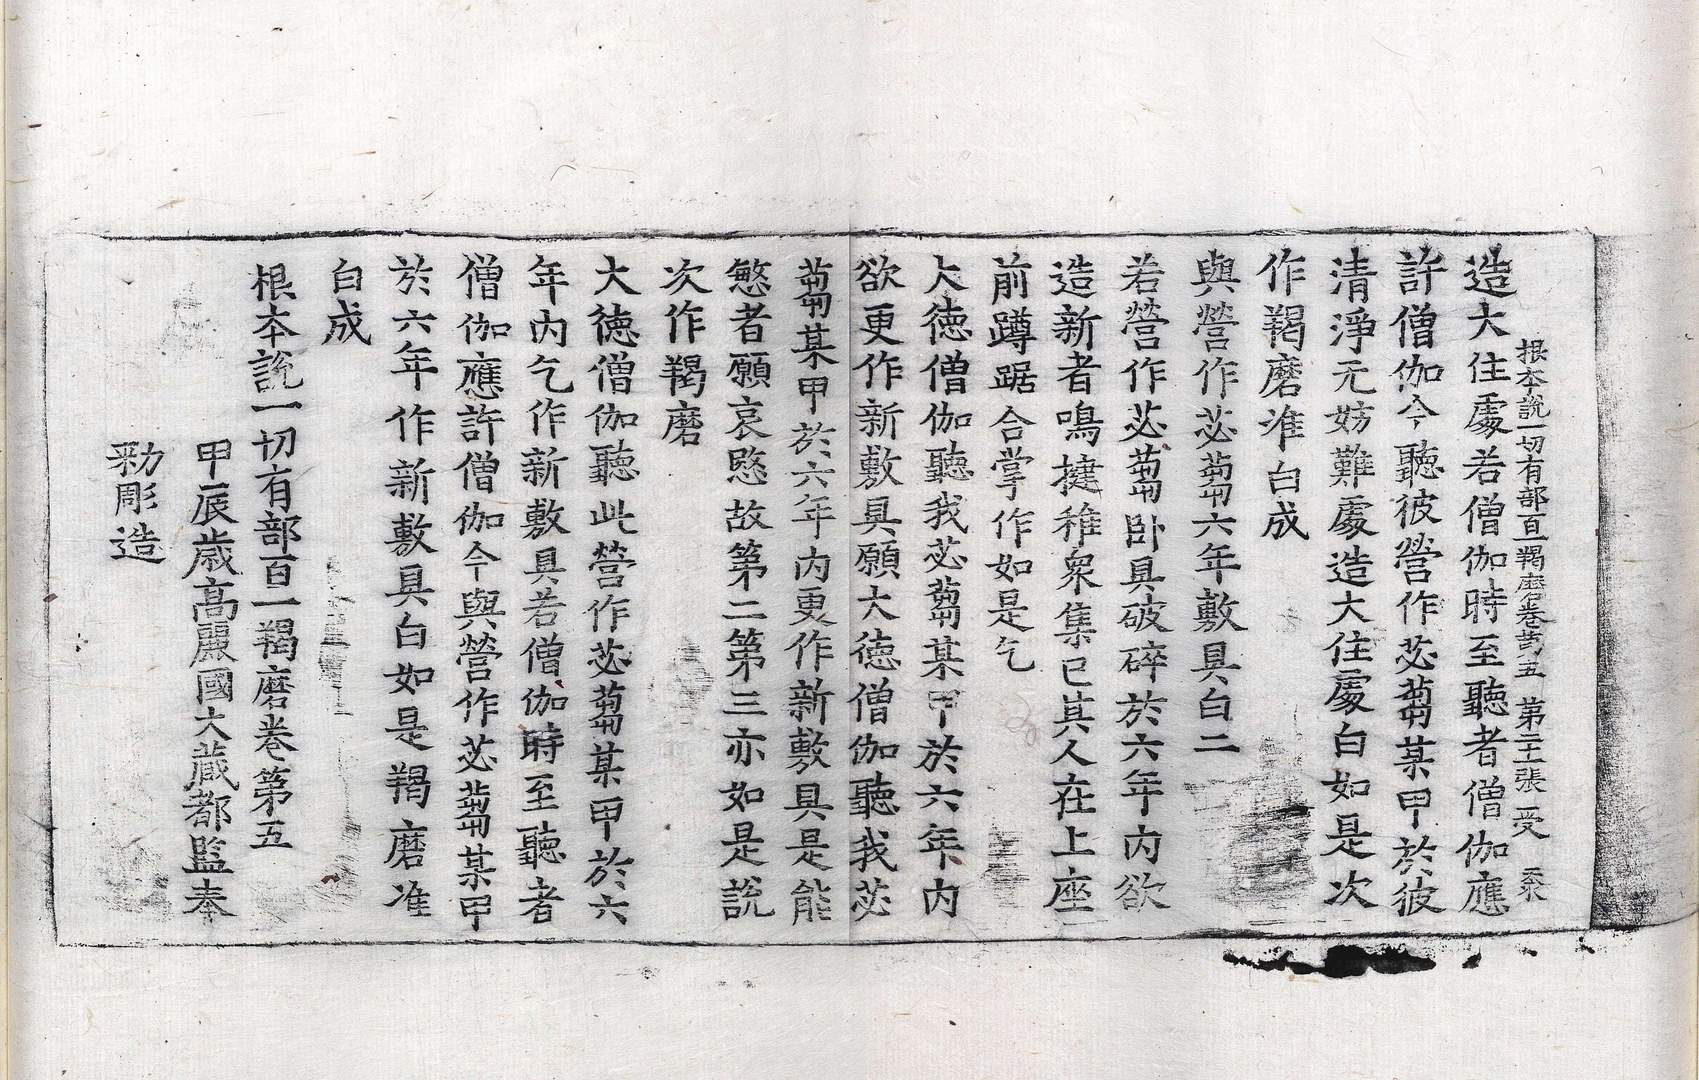 根本說一切有部百一羯磨卷第五 第二十張 受
造大住處若僧伽時至聽者僧伽應
許僧伽今聽彼營作苾蒭某甲於彼
清淨无妨難處造大住處白如是次
作羯磨准白成
與營作苾蒭六年敷具白二
若營作苾蒭卧具破碎於六年內欲
造新者鳴揵稚衆集已其人在上座
前蹲踞合掌作如是乞
大德僧伽聽我苾蒭某甲於六年內
欲更作新敷具願大德僧伽聽我苾
蒭某甲於六年內更作新敷具是能
愍者願哀愍故第二第三亦如是說
次作羯磨
大德僧伽聽此營作苾蒭某甲於六
年內乞作新敷具若僧伽時至聽者
僧伽應許僧伽今與營作苾蒭某甲
於六年作新敷具白如是羯磨准
白成
根本說一切有部百一羯磨卷第五
甲辰歲高麗國大藏都監奉
勅彫造